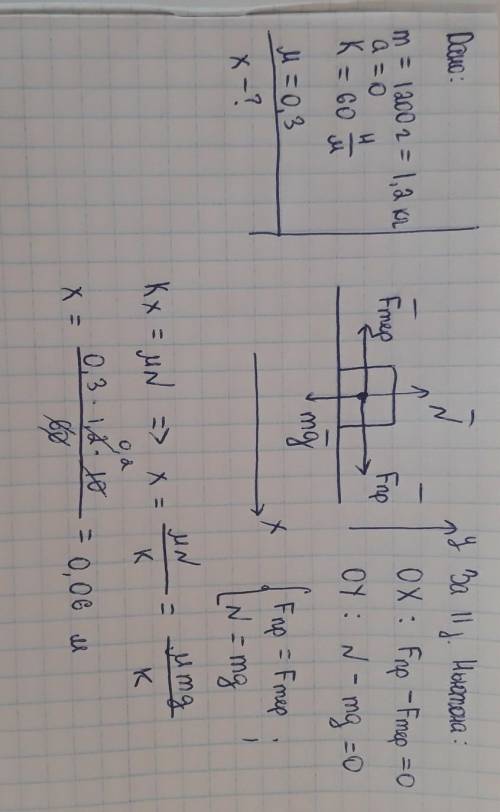 Дано:
m = 1200 г = 1,2 кг
a = 0
K = 60 Н/м
μ = 0,3
x - ?
N
Fтер
Fпр
mg
y
x
За II з. Ньютона:
OX: Fпр - Fтер = 0
OY: N - mg = 0
{ Fпр = Fтер ;
N = mg
Kx = μN => x = μN/K = μmg/K
x = 0,3 · 1,2 · 10 / 60 = 0,06 м
0,2